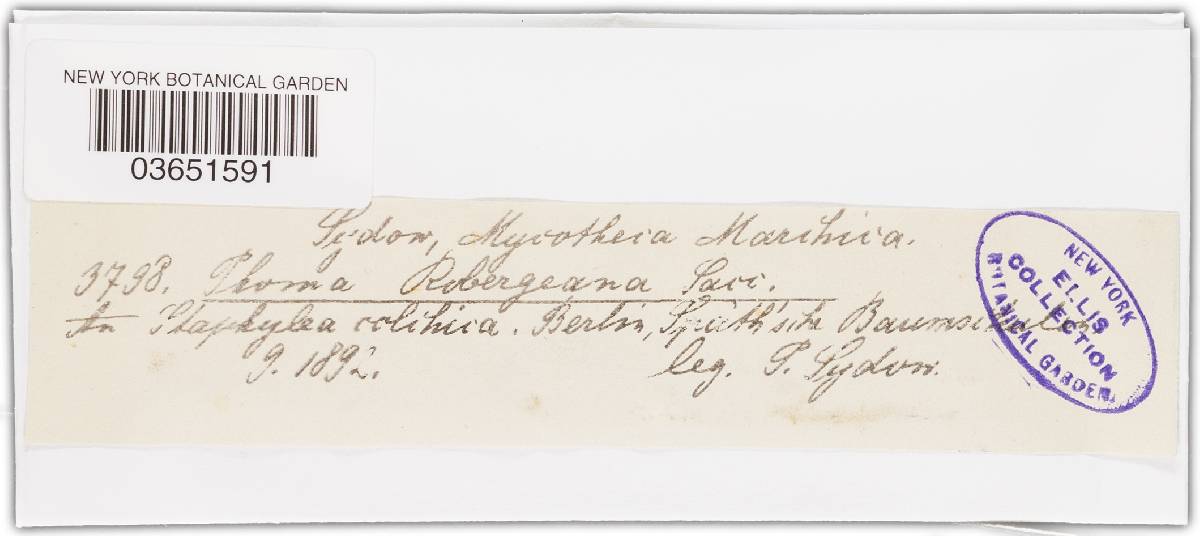 NEW YORK BOTANICAL GARDEN
03651591
Sydow, Mycotheca Marchica.
3798. Phoma Robergeana Sacc.
An Staphylea colchica. Berlin, Späth'sche Baumschulen
9. 1892. leg. P. Sydow.
NEW YORK
ELLIS
COLLECTION
BOTANICAL GARDEN